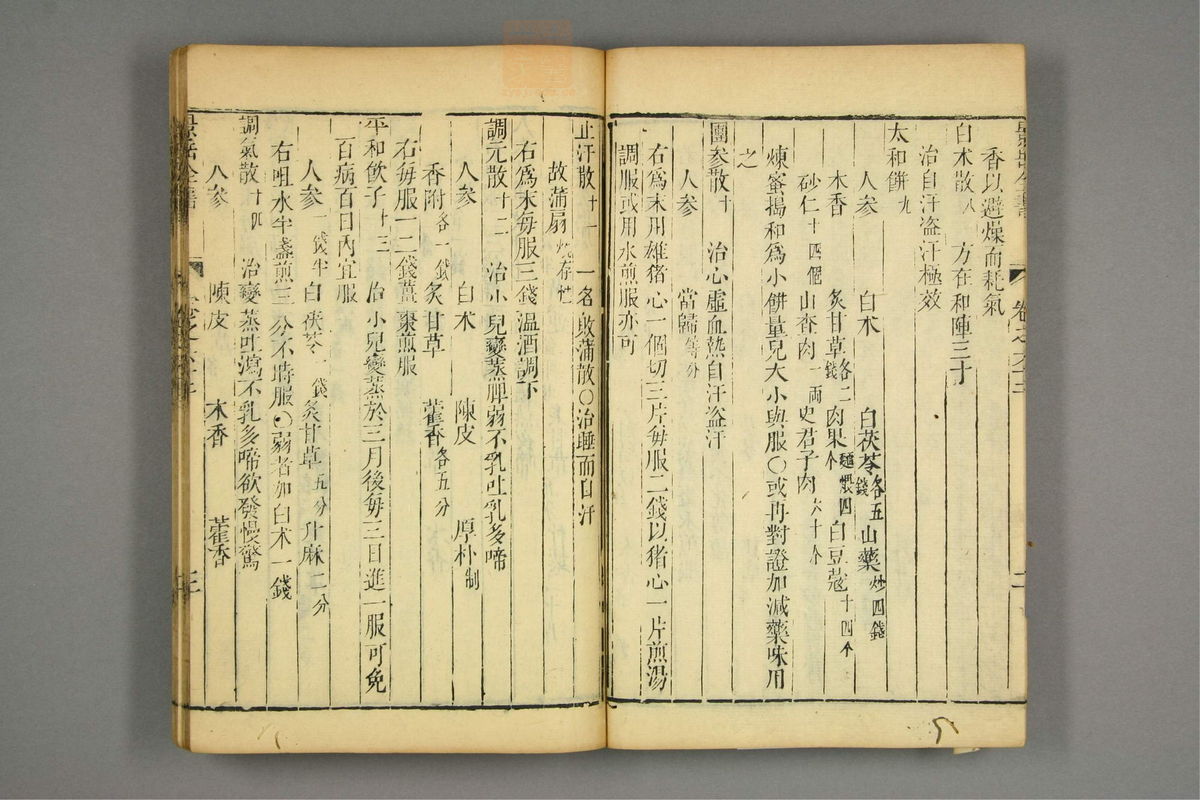 香以避燥而耗氣
白术散 八 方在和陣三十
治自汗盗汗極效
太和餅 九
人参 白术 白茯苓 各五錢 山藥 炒四錢
木香 炙甘草 各二錢 肉果 麵煨四个 白豆蔻 十四个
砂仁 十四個 山查肉 一両 史君子肉 六十个
煉蜜搗和爲小餅量兒大小與服〇或再對證加減藥味用
之
團参散 十 治心虛血熱自汗盗汗
人参 當歸 等分
右爲末用雄猪心一個切三片毎服二錢以猪心一片煎湯
調服或用水煎服亦可
止汗散 十一 一名敗蒲散〇治睡而自汗
故蒲扇 燒存性
右爲末毎服三錢温酒調下
調元散 十二 治小兒變蒸脾弱不乳吐乳多啼
人参 白术 陳皮 厚朴 制
香附 各一錢 炙甘草 藿香 各五分
右毎服一二錢薑棗煎服
平和飲子 十三 治小兒變蒸於三月後毎三日進一服可免
百病百日內宜服
人参 一錢半 白茯苓 一錢 炙甘草 五分 升麻 二分
右咀水半盞煎三分不時服〇弱者加白术一錢
調氣散 十四 治變蒸吐瀉不乳多啼欲發慢驚
人参 陳皮 木香 藿香